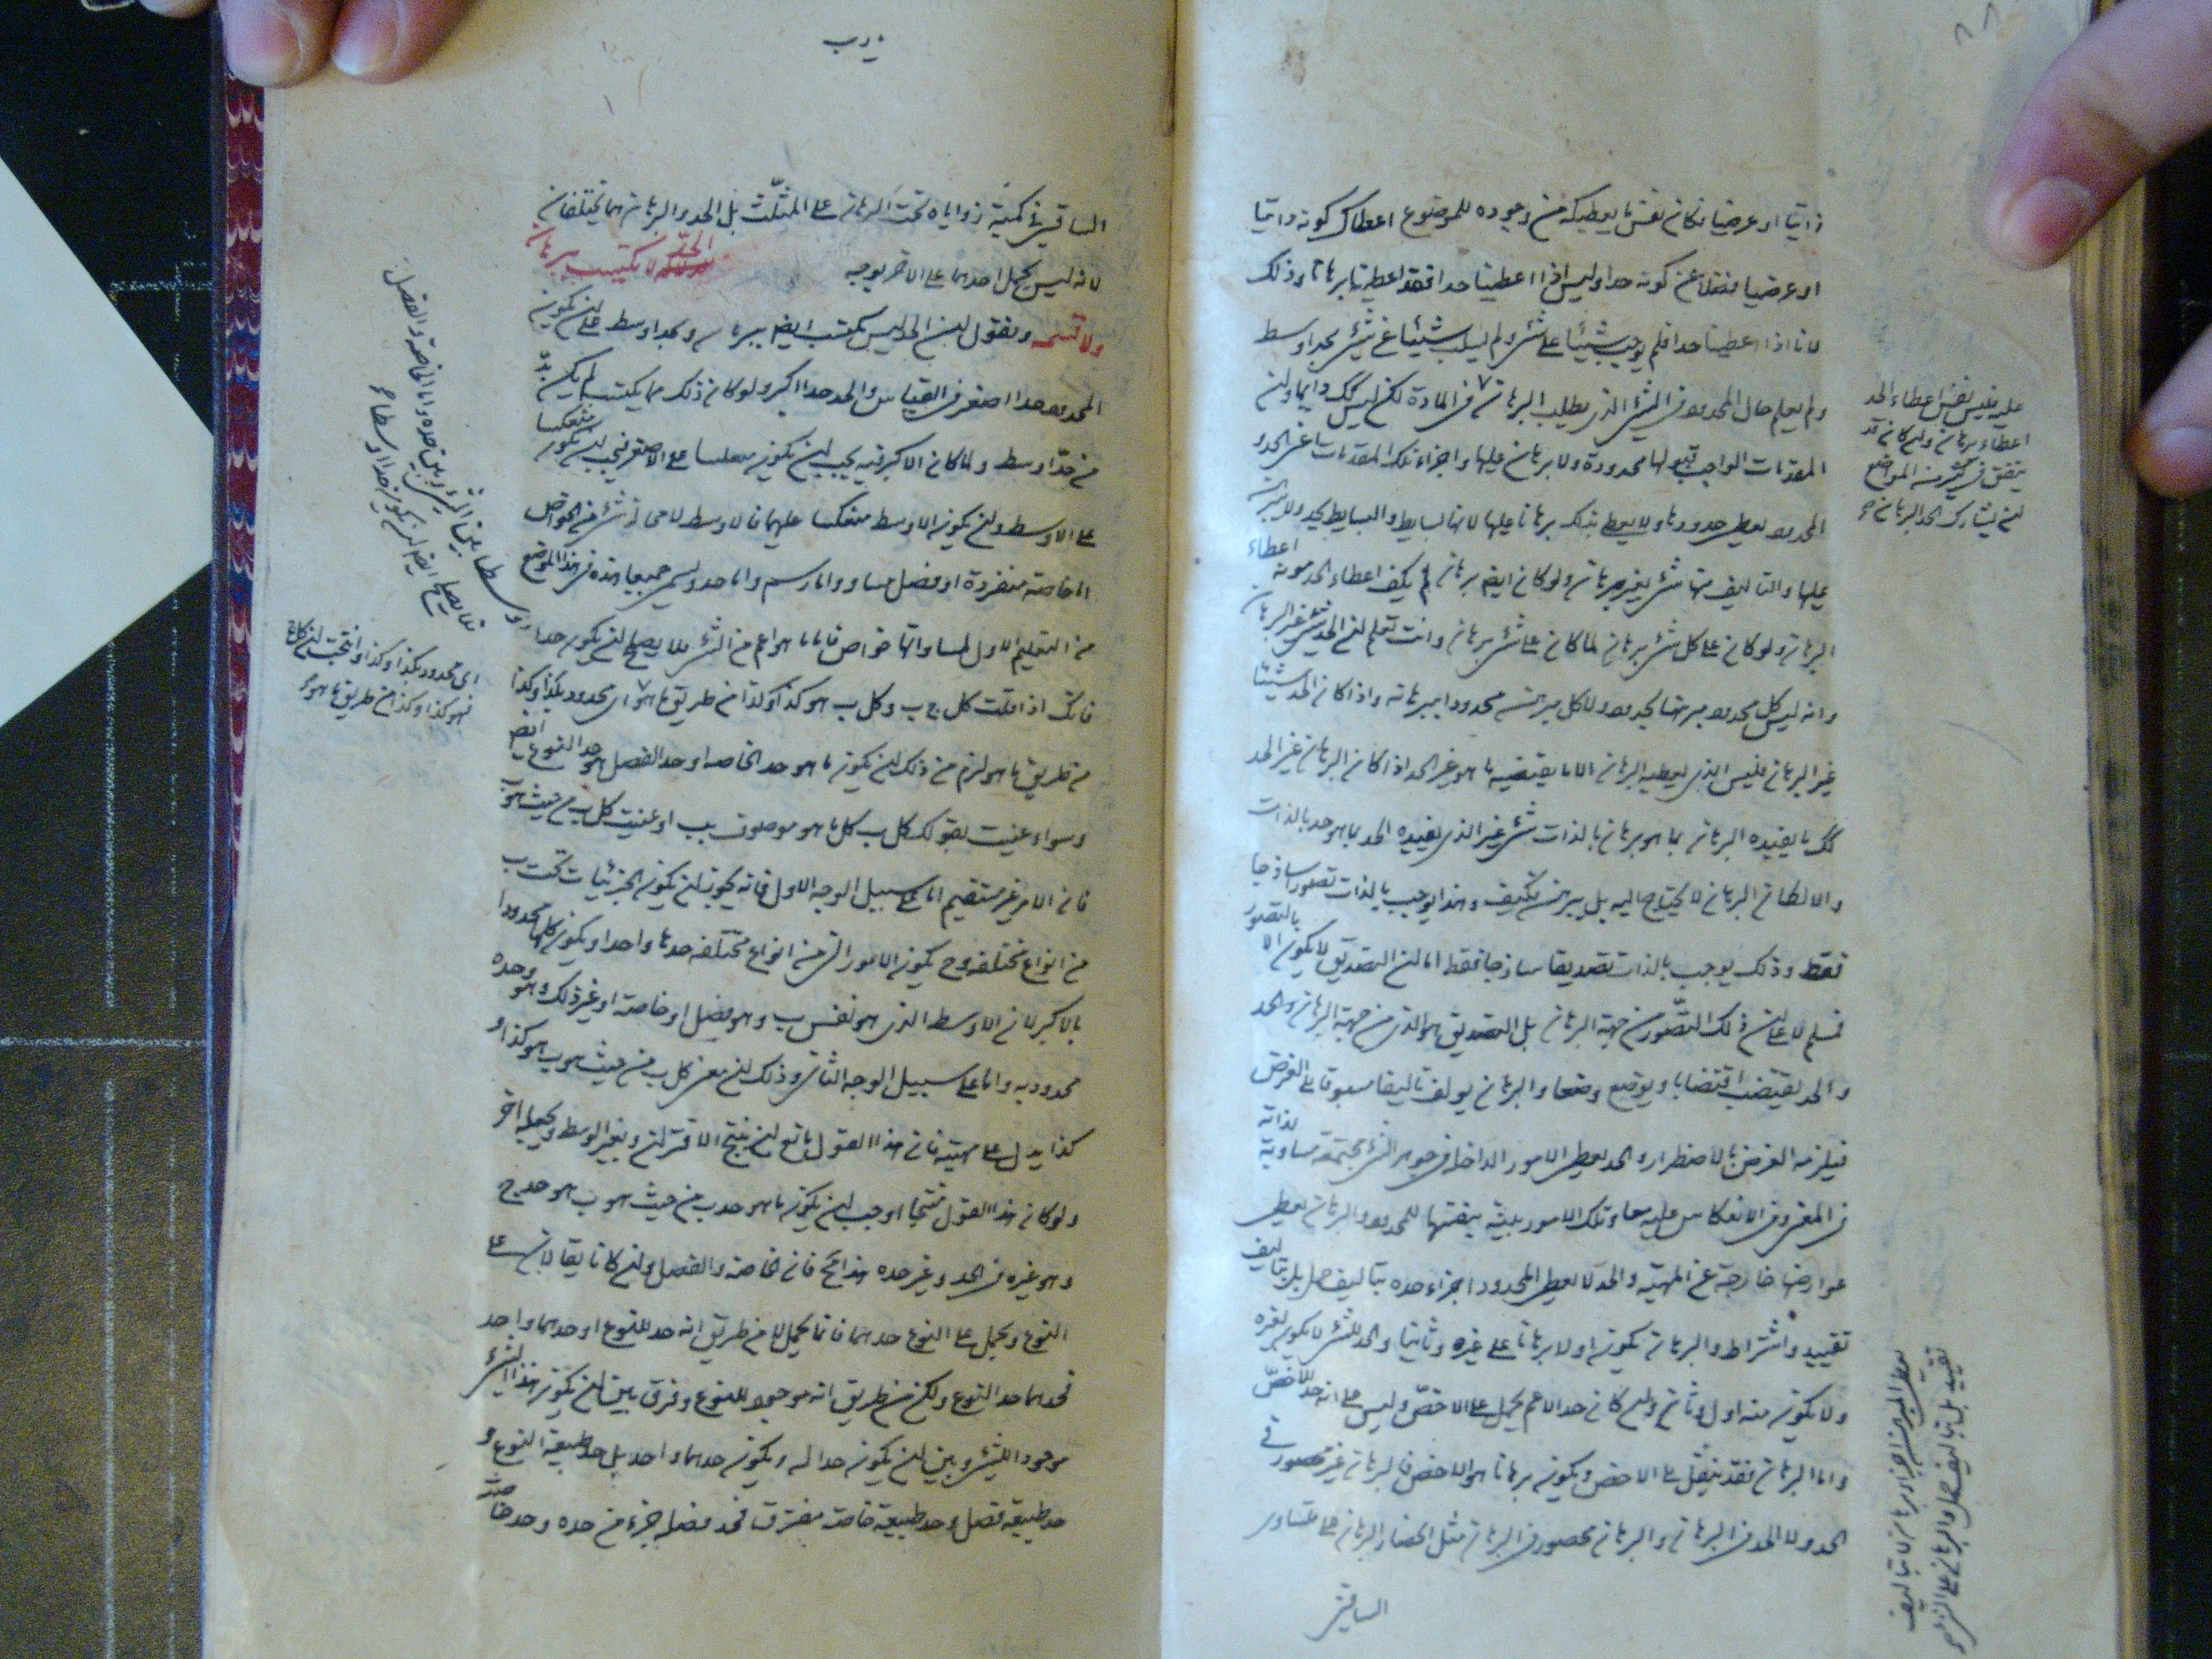 ذاتيا او عرضيا فكان نفس ما يعطيك من وجوده للموضوع اعطاك كونه ذاتيا
او عرضيا فضلا عن كونه حدا وليس اذا اعطينا حدا فقد اعطينا برهانا وذلك
لانا اذا اعطينا حدا فلم يوجب شيئا على شئ ولم نسلب شيئا عن شئ بحد اوسط
ولم يعلم حال المحدود فى الشئ الذى يطلب البرهان فى المادة لكن ليس دايما ولان
المقدمات الواجب قبولها محدودة ولا برهان عليها واجزاء تلك المقدمات اعنى الحدود
المحدود يعطى حدودها ولا يعطى بذلك برهانا عليها لانها بسايط والبسايط تحد ولا يبرهن
عليها والتاليف منها شئ بغير برهان ولو كان ايضا برهان لم يكف اعطاء الحد مونة اعطاء
البرهان ولو كان على كل شئ برهان لما كان على شئ برهان وانت تعلم ان الحد شئ غير البرهان
وانه ليس كل محدود مبرهنا بحده ولا كل مبرهن محدودا ببرهانه واذا كان الحد شيئا
غير البرهان فليس الذى يعطيه البرهان الا ما يقتضيه ما هو غير الحد اذا كان البرهان غير الحد
ما يفيده البرهان بما هو برهان بالذات شئ غير الذى يفيده الحد بما هو حد بالذات
والا لكان البرهان لا يحتاج اليه بل يبرهن بتكيف وهذا يوجب بالذات تصورا ساذجا
فقط وذلك يوجب بالذات تصديقا ساذجا فقط اما ان التصديق لا يكون الا بالتصور
فمسلم لا على ان ذلك التصور من جهة البرهان بل التصديق هو الذى من جهة البرهان والحد
والحد يقتضب اقتضابا ويوضع وضعا والبرهان يولف تاليفا مسبوقا الى الغرض
فيلزمه الغرض بالاضطرار والحد يعطى الامور الداخلة فى جوهر الشئ مجتمعة مساوية لذاته
فى المعنى وفى الانعكاس عليه معا وتلك الامور بينة بنفسها للمحدود والبرهان يعطى
عوارض خارجة عن المهية والحد لا يعطى المحدود اجزاء حده بتاليف حمل بل بتاليف
تقييد واشتراط والبرهان يكون اولا برهانا على غيره وثانيا والحد للشئ لا يكون لغيره
ولا يكون منه اول وثان وان كان حد الاعم يحمل على الاخص وليس على انه حد للاخص
واما البرهان فقد ينقل على الاخص ويكون برهانا هو للاخص فالبرهان غير محصور فى
الحد ولا الحد فى البرهان والبرهان محصور فى البرهان مثل انحصار البرهان على متساوى
الساقين
عليه فليس نفس اعطاء الحد
اعطاء برهان وان كان قد
يتفق فى كثير من المواضع
ان يشارك الحد البرهان
الساقين فى كمية زواياه تحت البرهان على المثلث بل الحد والبرهان هما مختلفان
لانه ليس يحمل احدهما على الاخر بوجه
الحد لا يكتسب ببرهان
ولا قسمة ونقول ان الحد ليس يكتسب ايضا ببرهان وبحد اوسط على ان يكون
المحدود حدا اصغر فى القياس والحد حدا اكبر ولو كان ذلك مما يكتسب لم يكن بد
من حد اوسط ولما كان الاكبر فيه يجب ان يكون منعكسا على الاصغر فيجب ان يكون منعكسا
على الاوسط وان يكون الاوسط منعكسا عليهما فالاوسط لا محالة شئ من الخواص
اما خاصة منفردة او فصل مساو واما رسم واما حد ويسمى جميعا هذه فى هذا الموضع
من التعليم الاول لمساواتها خواص فاما ما هو اعم من الشئ فلا يصلح ان يكون حدا
فانك اذا قلت كل ج ب وكل ب هو كذا وكذا من طريق ما هو اى محدود بكذا وكذا
من طريق ما هو لزم من ذلك ان يكون ما هو حد الخاصة او حد الفصل هو حد النوع ايضا
وسواء عنيت بقولك كل ب كل ما هو موصوف بب او عنيت كل ب من حيث هو ب
فان الامر غير مستقيم اما على سبيل الوجه الاول فانه يجوز ان يكون الجزئيات تحت ب
من انواع مختلفة وح يكون الامور التى من انواع مختلفة حدها واحدا ويكون كلها محدودا
بالاكبر لان الاوسط الذى هو نفس ب وهو فصل او خاصة او غير ذلك وهو وحده
محدود به واما على سبيل الوجه الثانى وذلك ان معنى كل ب من حيث هو ب هو كذا و
كذا يدل على مهيته فان هذا القول مانع ان ينتج الاقتران ويغير الوسط ويجعله اخر
ولو كان هذا القول منتجا اوجب ان يكون ما هو حد ب من حيث هو ب هو حد ج
وهو غيره فى الحد وغير حده هذا مح فان الخاصة والفصل وان كانا يقالان على
النوع ويحمل على النوع حدهما فانما يحمل لا من طريق انه حد للنوع او حدهما واحد
فحدهما حد النوع ولكن من طريق انه موجود للنوع وفرق بين ان يكون هذا الشئ
موجودا للشئ وبين ان يكون حدا له ويكون حدهما واحد بل حد طبيعة النوع و
حد طبيعة فصل وحد طبيعة خاصة مفترق فحد فصله جزء من حده وحد خاصته
اى محدود بكذا وكذا وانتجت ان كل ج
فهو كذا وكذا من طريق ما هو